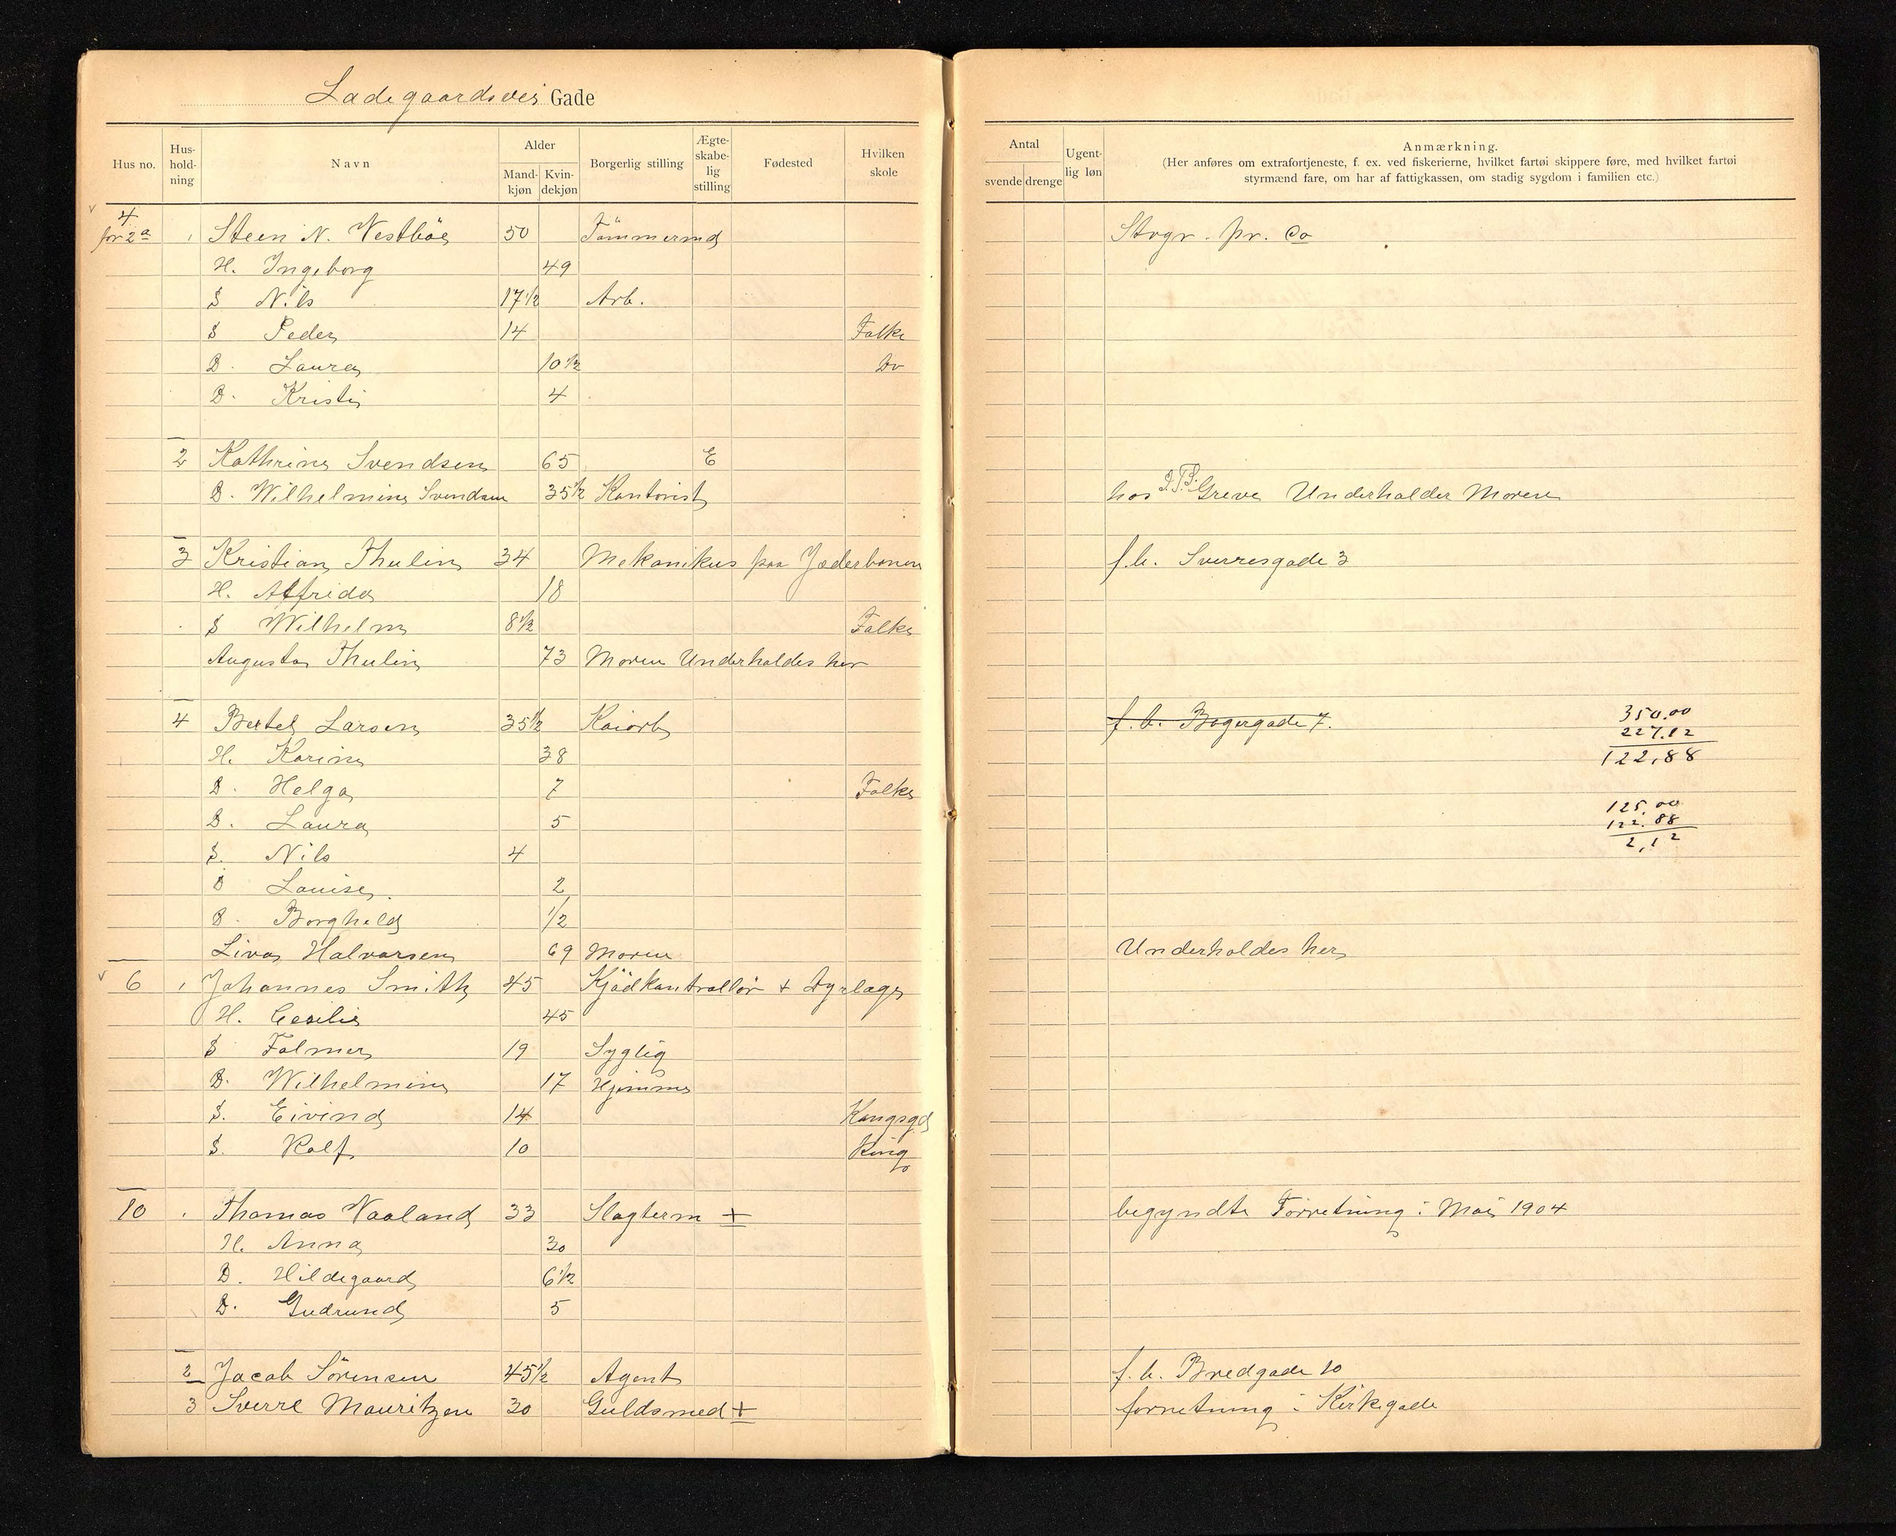 Ladegaardsvei Gade
Hus no. Hus-hold-ning Navn Alder Mand-kjøn Kvin-dekjøn Borgerlig stilling Ægte-skabe-lig stilling Fødested Hvilken skole
Antal svende drenge Ugent-lig løn Anmærkning.
(Her anføres om extrafortjeneste, f. ex. ved fiskerierne, hvilket fartøi skippere føre, med hvilket fartøi
styrmænd fare, om har af fattigkassen, om stadig sygdom i familien etc.)
4 for 2a 1 Steen N. Vestbøe 50 Tömmermd Stvgr. pr. Co
H. Ingeborg 49
S Nils 17 1/2 Arb.
S Peder 14 Folke
D. Laura 10 1/2 Do
D. Kristi 4
2 Kathrine Svendsen 65 E
D. Wilhelmine Svendsen 35 1/2 Kontorist hos Greve Underholder Moren
3 Kristian Thulin 34 Mekanikus paa Jæderbanen f.b. Sverresgade 3
H. Alfrida 18
S Wilhelm 8 1/2 Folke
Augusta Thulin 73 Moren Underholdes her
4 Bertel Larsen 35 1/2 Kaiarb f.b. Bagergade 7. 350.00
227.12
H. Karine 38 122,88
D. Helga 7 Folke
D. Laura 5 125,00
122.88
S. Nils 4 2,12
D Louise 2
D. Borghild 1/2
Liva Halvorsen 69 Moren Underholdes her
6 1 Johannes Smith 45 Kjödkontrollör + Dyrlæge
H. Cecilie 45
S Folmer 19 Syglig
D. Wilhelmine 17 Hjemme
S. Eivind 14 Kongsgd
S. Rolf 10 Kong
10 1 Thomas Vaaland 33 Slagterm + begyndte Forretning i Mai 1904
H. Anna 30
D. Hildegaard 6 1/2
D. Gudrund 5
2 Jacob Sörensen 45 1/2 Agent f.b. Bredgade 10
3 Sverre Mauritzen 30 Guldsmed + forretning i Kirkgade